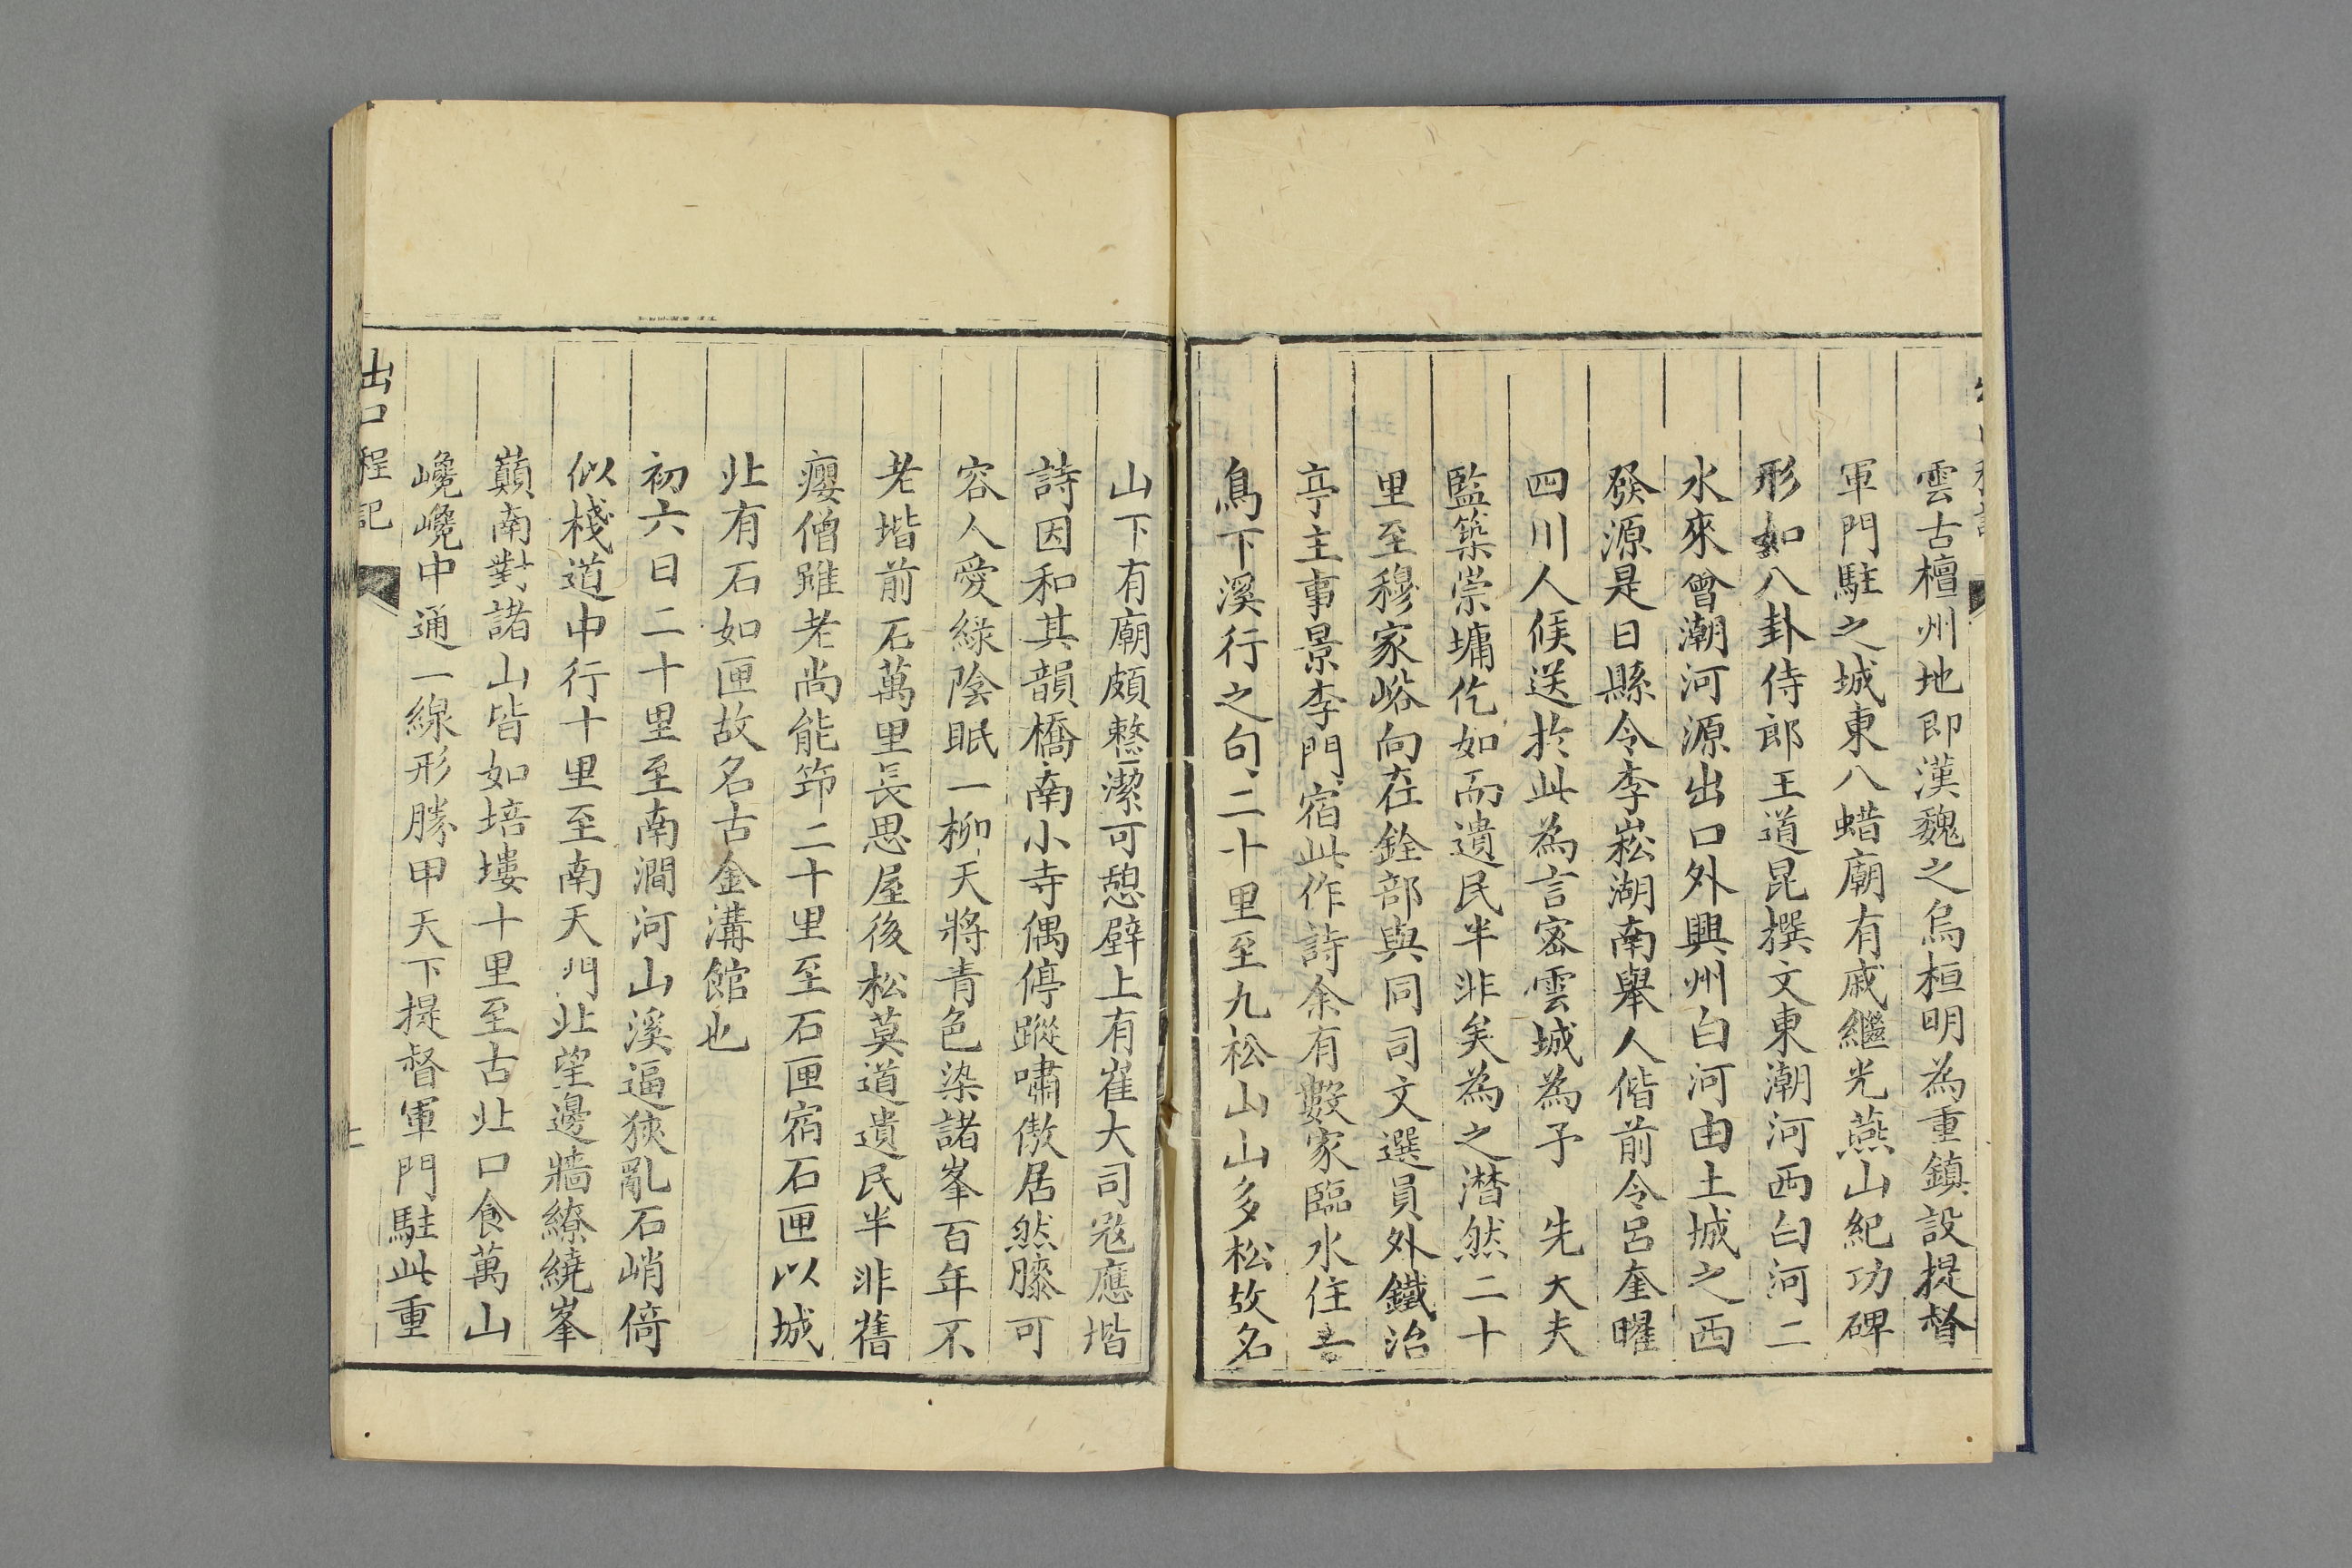 雲古檀州地即漢魏之烏桓明為重鎮設提督
軍門駐之城東八蜡廟有戚繼光燕山紀功碑
形如八卦侍郎王道昆撰文東潮河西白河二
水來會潮河源出口外興州白河由土城之西
發源是日縣令李崧湖南舉人偕前令呂奎曜
四川人候送於此為言密雲城為予 先大夫
監築崇墉仡如而遺民半非矣為之潸然二十
里至穆家峪向在銓部與同司文選員外鐵冶
亭主事景李門宿此作詩余有數家臨水住
鳥下溪行之句二十里至九松山山多松故名
山下有廟頗整潔可憩壁上有崔大司寇應堦
詩因和其韻橋南小寺偶停蹤嘯傲居然膝可
容人愛綠陰眠一柳天將青色染諸峯百年不
老堦前石萬里長思屋後松莫道遺民半非舊
癭僧雖老尚能筇二十里至石匣宿石匣以城
北有石如匣故名古金溝館也
初六日二十里至南澗河山溪逼狹亂石峭倚
似棧道中行十里至南天門北望邊牆繚繞峯
巔南對諸山皆如培塿十里至古北口食萬山
巉巉中通一線形勝甲天下提督軍門駐此重
出口程記